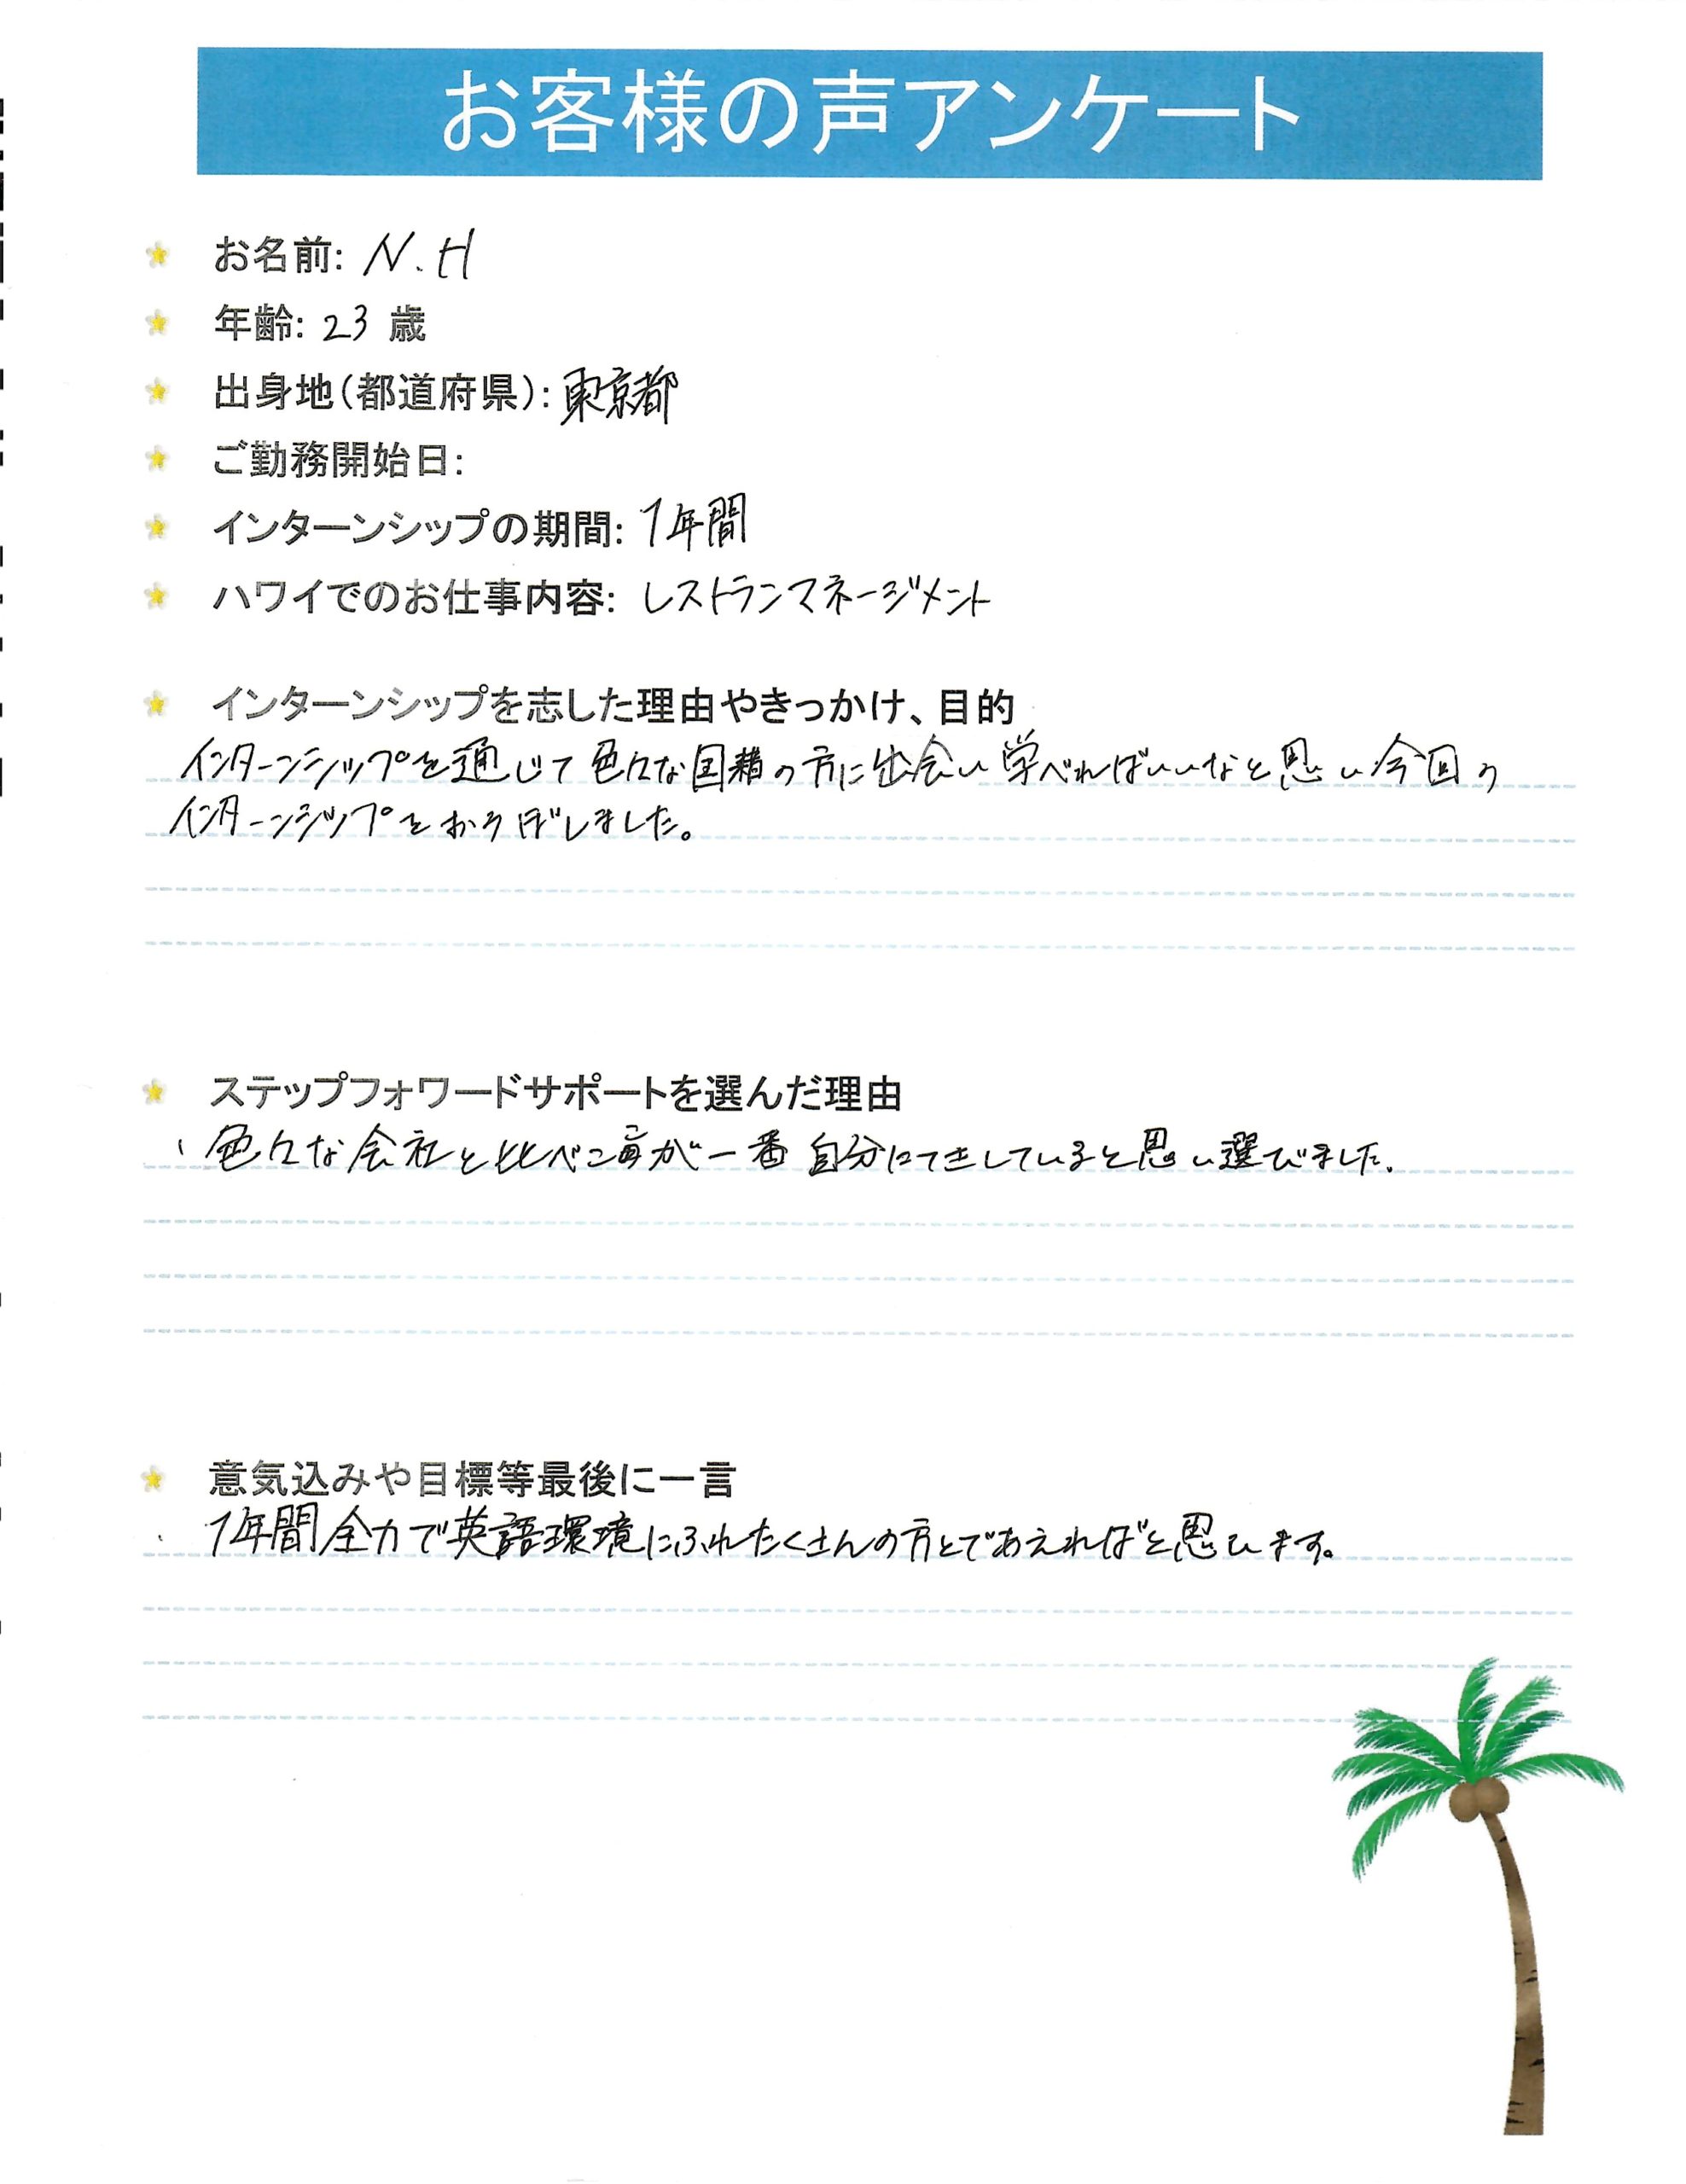 お客様の声アンケート
お名前: N.H
年齢: 23 歳
出身地(都道府県): 東京都
ご勤務開始日:
インターンシップの期間: 1年間
ハワイでのお仕事内容: レストランマネージメント
インターンシップを志した理由やきっかけ、目的
インターンシップを通じて色々な国籍の方に出会い学べればいいなと思い今回の
インターンシップをおうぼしました。
ステップフォワードサポートを選んだ理由
色々な会社と比べが一番自分にてきしていると思い選びました。
意気込みや目標等最後に一言
1年間全力で英語環境にふれたくさんの方とであえればと思います。